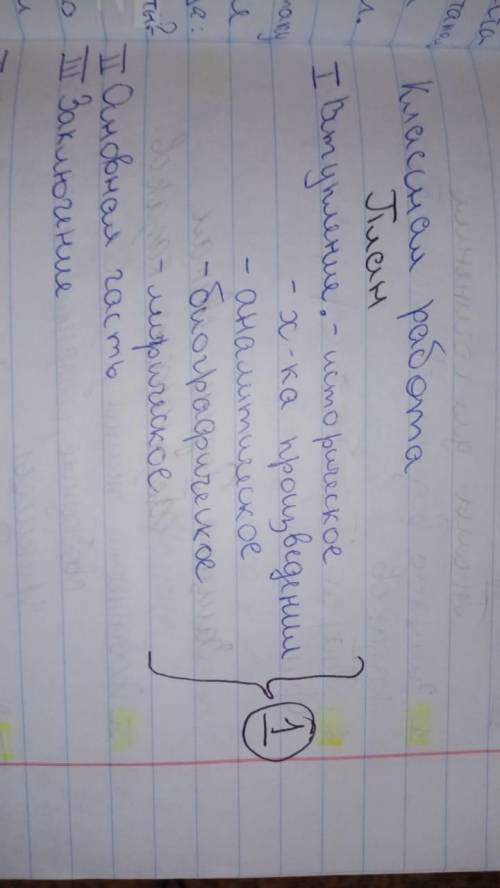 Классная работа
План
I Вступление. - историческое
- х-ка произведения
- аналитическое
- биографическое
- лирическое
1
II Основная часть
III Заключение